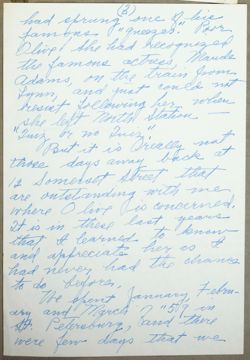 (3)
had sprung one of his
famous "Quizzes." Poor
Olive! She had recognized
the famous actress, Maude
Adams, on the train from
Lynn, and just could not
resist following her when
she left North Station —
"Quiz or no Quiz"
But it is really not
those days away back at
12 Somerset Street that
are outstanding with me
where Olive is concerned.
It is in these last years
that I learned to know
and appreciate her as I
had never had the chance
to do, before.
We spent January, Febru-
ary and March of '51 in
St. Petersburg, and there
were few days that we